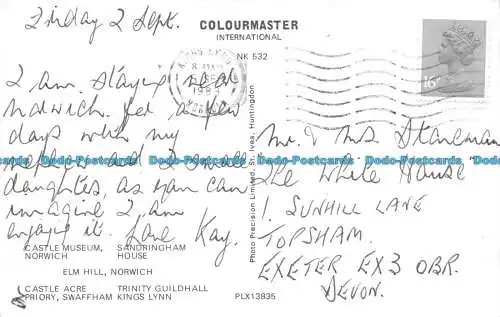 Friday 2 Sept.
COLOURMASTER
INTERNATIONAL
NK 532
I am staying near
Norwich for a few
days with my
and 2 small
daughters, as you can
imagine I am
enjoying it. Love Kay.
CASTLE MUSEUM, NORWICH
SANDRINGHAM HOUSE
ELM HILL, NORWICH
CASTLE ACRE PRIORY, SWAFFHAM
TRINITY GUILDHALL KINGS LYNN
Photo Precision Limited, St. Ives, Huntingdon
PLX13835
16P
Mr. & Mrs Stancman
"The White House"
1, SUNHILL LANE
TOPSHAM.
EXETER EX3 0BR.
DEVON.
Dodo-Postcards Dodo-Postcards Dodo-Postcards Dodo-Postcards Dodo-Postcards